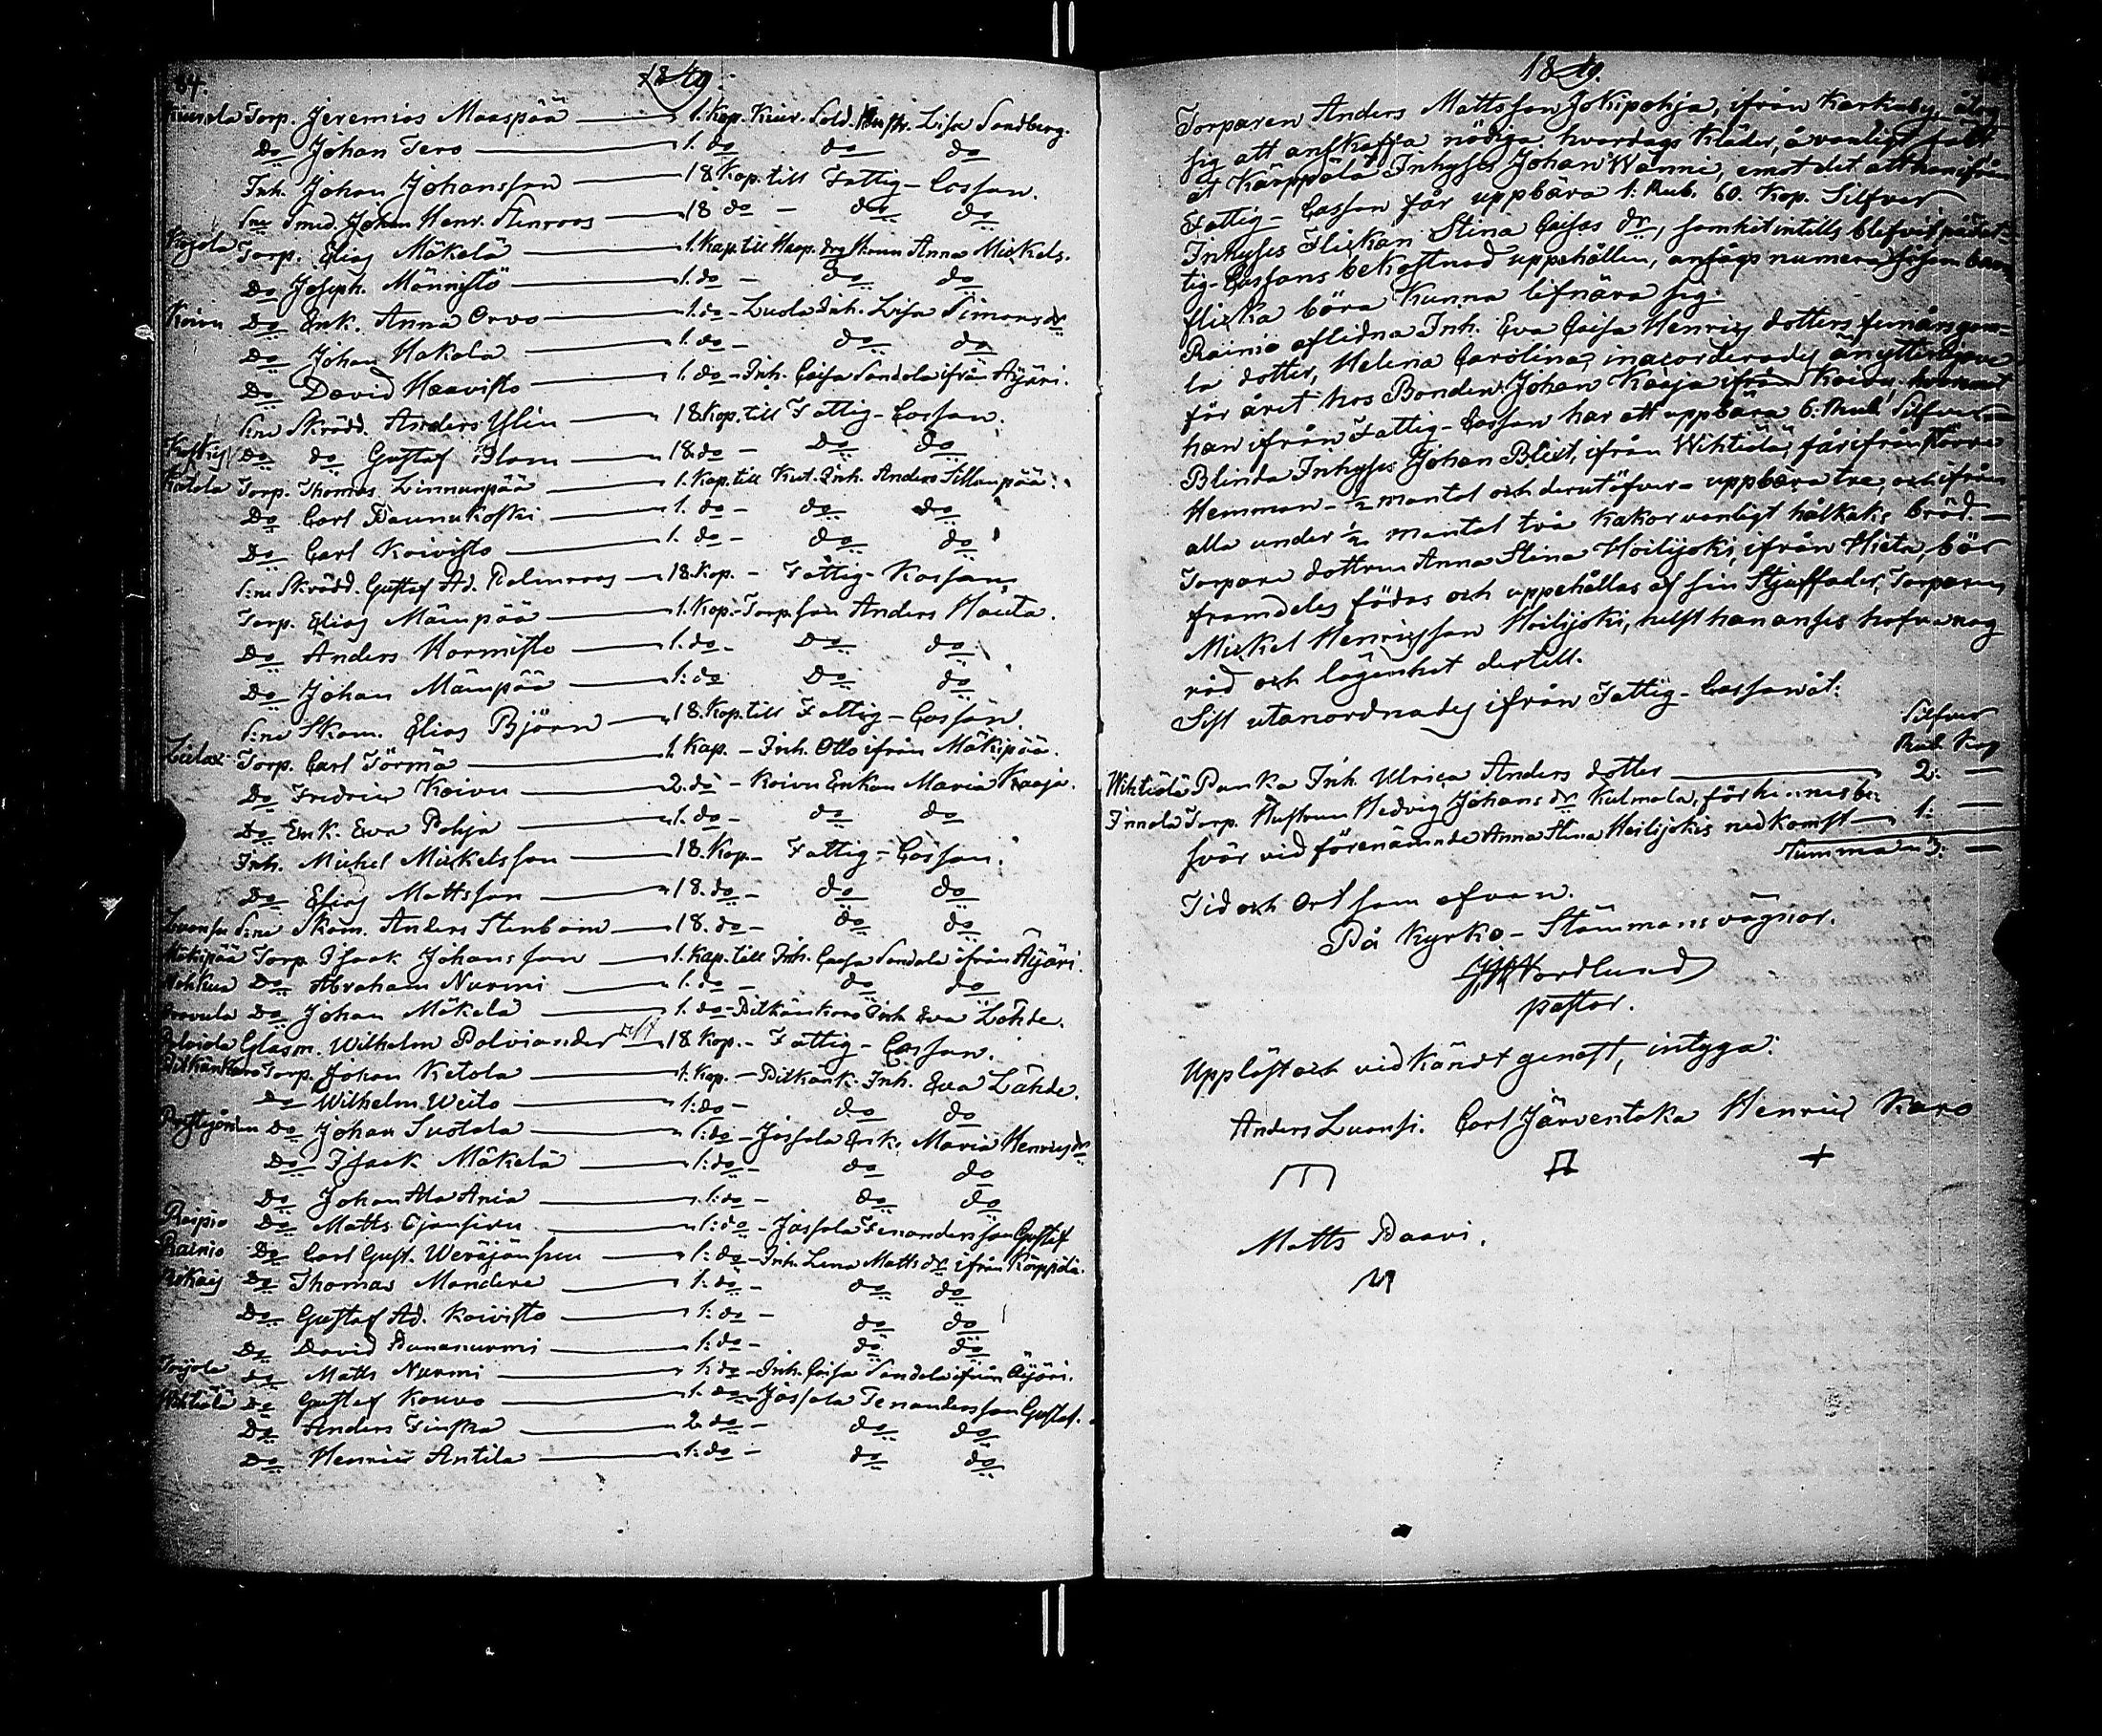 64.
1849.
Kiurala Torp. Jeremias Maaspää — 1. Kap. Kiur. Sold. Hustr. Lisa Sandberg.
Do Johan Tero — 1. do do do
Inh. Johan Johansson — 18 Kop. till Fattig-Cassan.
Sne Smed. Johan Henr. Stenroos — 18 do - do do
Kojola Torp. Elias Mäkelä — 1. Kap. till Haap. drg Hrun Anna Mickels.
Do Joseph. Männistö — 1. do - do do
Koivu Do Enk. Anna Orvo — 1. do - Luola Inh. Lisa Simons dr
Do Johan Hakala — 1. do - do do
Do David Haavisto — 1. do - Inh. Caisa Sandola ifrån Äyäri.
Sne Skrädd. Anders Ylin — 18 Kop. till Fattig-Cassan.
do Gustaf Blom — 18 do - do do
Katola Torp. Thomas Linnunpää — 1. Kap. till Kut. Inh. Anders Sillanpää.
Do Carl Paunukoski — 1. do - do do
Do Carl Koivisto — 1. do - do do
Sne Skrädd. Gustaf Ad. Palmroos — 18 Kop. - Fattig-Kassan
Torp. Elias Mämpää — 1. Kap. - Torp. son Anders Hauta.
Do Anders Harmisto — 1. do - do do
Do Johan Mämpää — 1: do do do
Sne Skom. Elias Björn — 18. Kop. till Fattig-Cassan.
Torp. Carl Törmä — 1. Kap. - Inh. Otto ifrån Mäkipää.
Do Fredric Koivu — 2. do - Koivu Enkan Maria Kaaja.
Do Enk. Eva Pohja — 1. do - do do
Inh. Michel Mickelsson — 18. Kop. - Fattig-Cassan.
Do Elias Mattsson — 18. do - do do
Luonsi Sne Skom. Anders Stenbom — 18. do - do do
Mäkipää Torp. Isaak Johansson — 1. Kap. till Inh. Caisa Sandola ifrån Äyäri.
Do Abraham Nurmi — 1. do - do do
Do Johan Mäkelä — 1. do - Pitkänkaro Inh. Eva Lähde.
Palviola Glasm. Wilhelm Palviander — 18 Kop. - Fattig-Cassan.
Pitkänkaro Torp. Johan Ketola — 1. Kap. - Pitkänk. Inh. Eva Lähde.
do Wilhelm Weito — 1: do - do do
Prostgården Do Johan Suotala — 1: do - Jassala Enk. Maria Henrics dr
Do Isaak Mäkelä — 1: do - do do
Do Johan Ala Ania — 1: do - do do
Raipio Do Matts Ojansivu — 1: do - Jassala Tenandersson Gustaf
Rainio Do Carl Gust. Weräjänsuu — 1: do - Inh. Lena Matts dr ifrån Kärppälä.
Do Thomas Mandere — 1: do - do do
Do Gustaf Ad. Koivisto — 1: do - do do
Do David Punanurmi — 1: do - do do
do Matts Nurmi — 1: do - Inh. Caisa Sandola ifrån Äyäri.
Wihtiälä do Gustaf Kouvo — 1. do - Jassala Tenandersson Gustaf.
Do Anders Finska — 2. do - do do
Do Henric Antila — 1: do - do do
1849.
Torparen Anders Mattsson Jokipohja, ifrån Karkaby, åtog
sig att anskaffa nödiga hvardags kläder, å vanligt sätt
åt Kärppälä Inhyses Johan Wanni, emot det att han ifrån
Fattig-Cassan får uppbära 1: Rub. 60. Kop. Silfver
Inhyses Flickan Stina Caisas dr, som hit intills blifvit på Fat-
tig-Cassans bekostnad uppehållen, ansågs numera såsom barn
flicka böra kunna lifnära sig.
Rainio aflidna Inh. Eva Caisa Henrics dotters femårs gam-
la dotter, Helena Carolina, inacorderades å nytto
för året hos Bonden Johan Kaaja ifrån Koivu hvaremot
han ifrån Fattig-Cassan har att uppbära 6: Rub. Silfver.
Blinda Inhyses Johan Blixt, ifrån Wihtiälä, får ifrån större
Hemman - ½ mantal och derutöfver - uppbära tre, och ifrån
alla under ½ mantal två kakor vanligt hålkaks bröd. —
Torpare dottren Anna Stina Hoilijoki, ifrån Hieta, bör
framdeles födas och uppehållas af sin Stjuffader, Torparen
Mickel Henricsson Hoilijoki, helst han anses hafva nog
råd och lägenhet dertill.
Sist utanordnades ifrån Fattig-Cassan åt:
Silfver
Rub. Kop
Wihtiälä Panka Inh. Ulrica Anders dotter — 2: —
Innola Torp. Hustrun Hedvig Johans dr Kulmala, för hennes be-
svär vid förenämnde Anna Stina Hoilijokis nedkomst — 1: —
Summa 3: —
Tid och Ort som ofvan.
På Kyrko-Stämmans vägnar.
Nordlund
pastor.
Uppläst och vidkändt genast, intyga:
Anders Luonsi. Carl Järventaka Henric Karo
Matts Paavi.